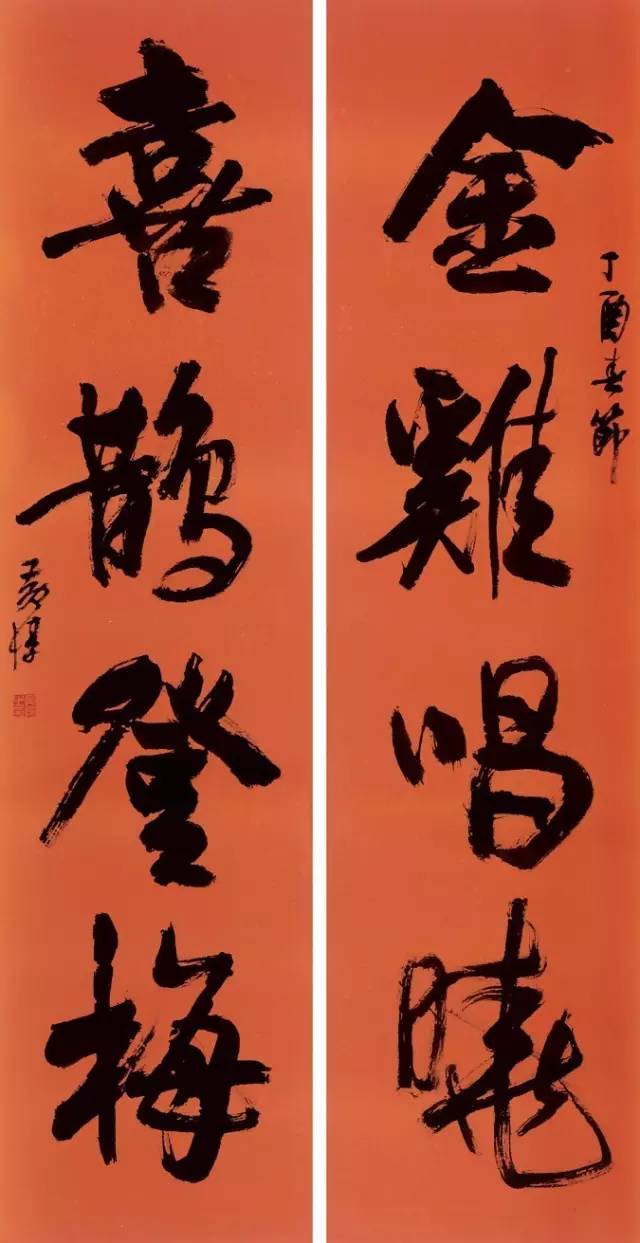 丁酉春節
金雞唱曉
喜鵲登梅
黃惇